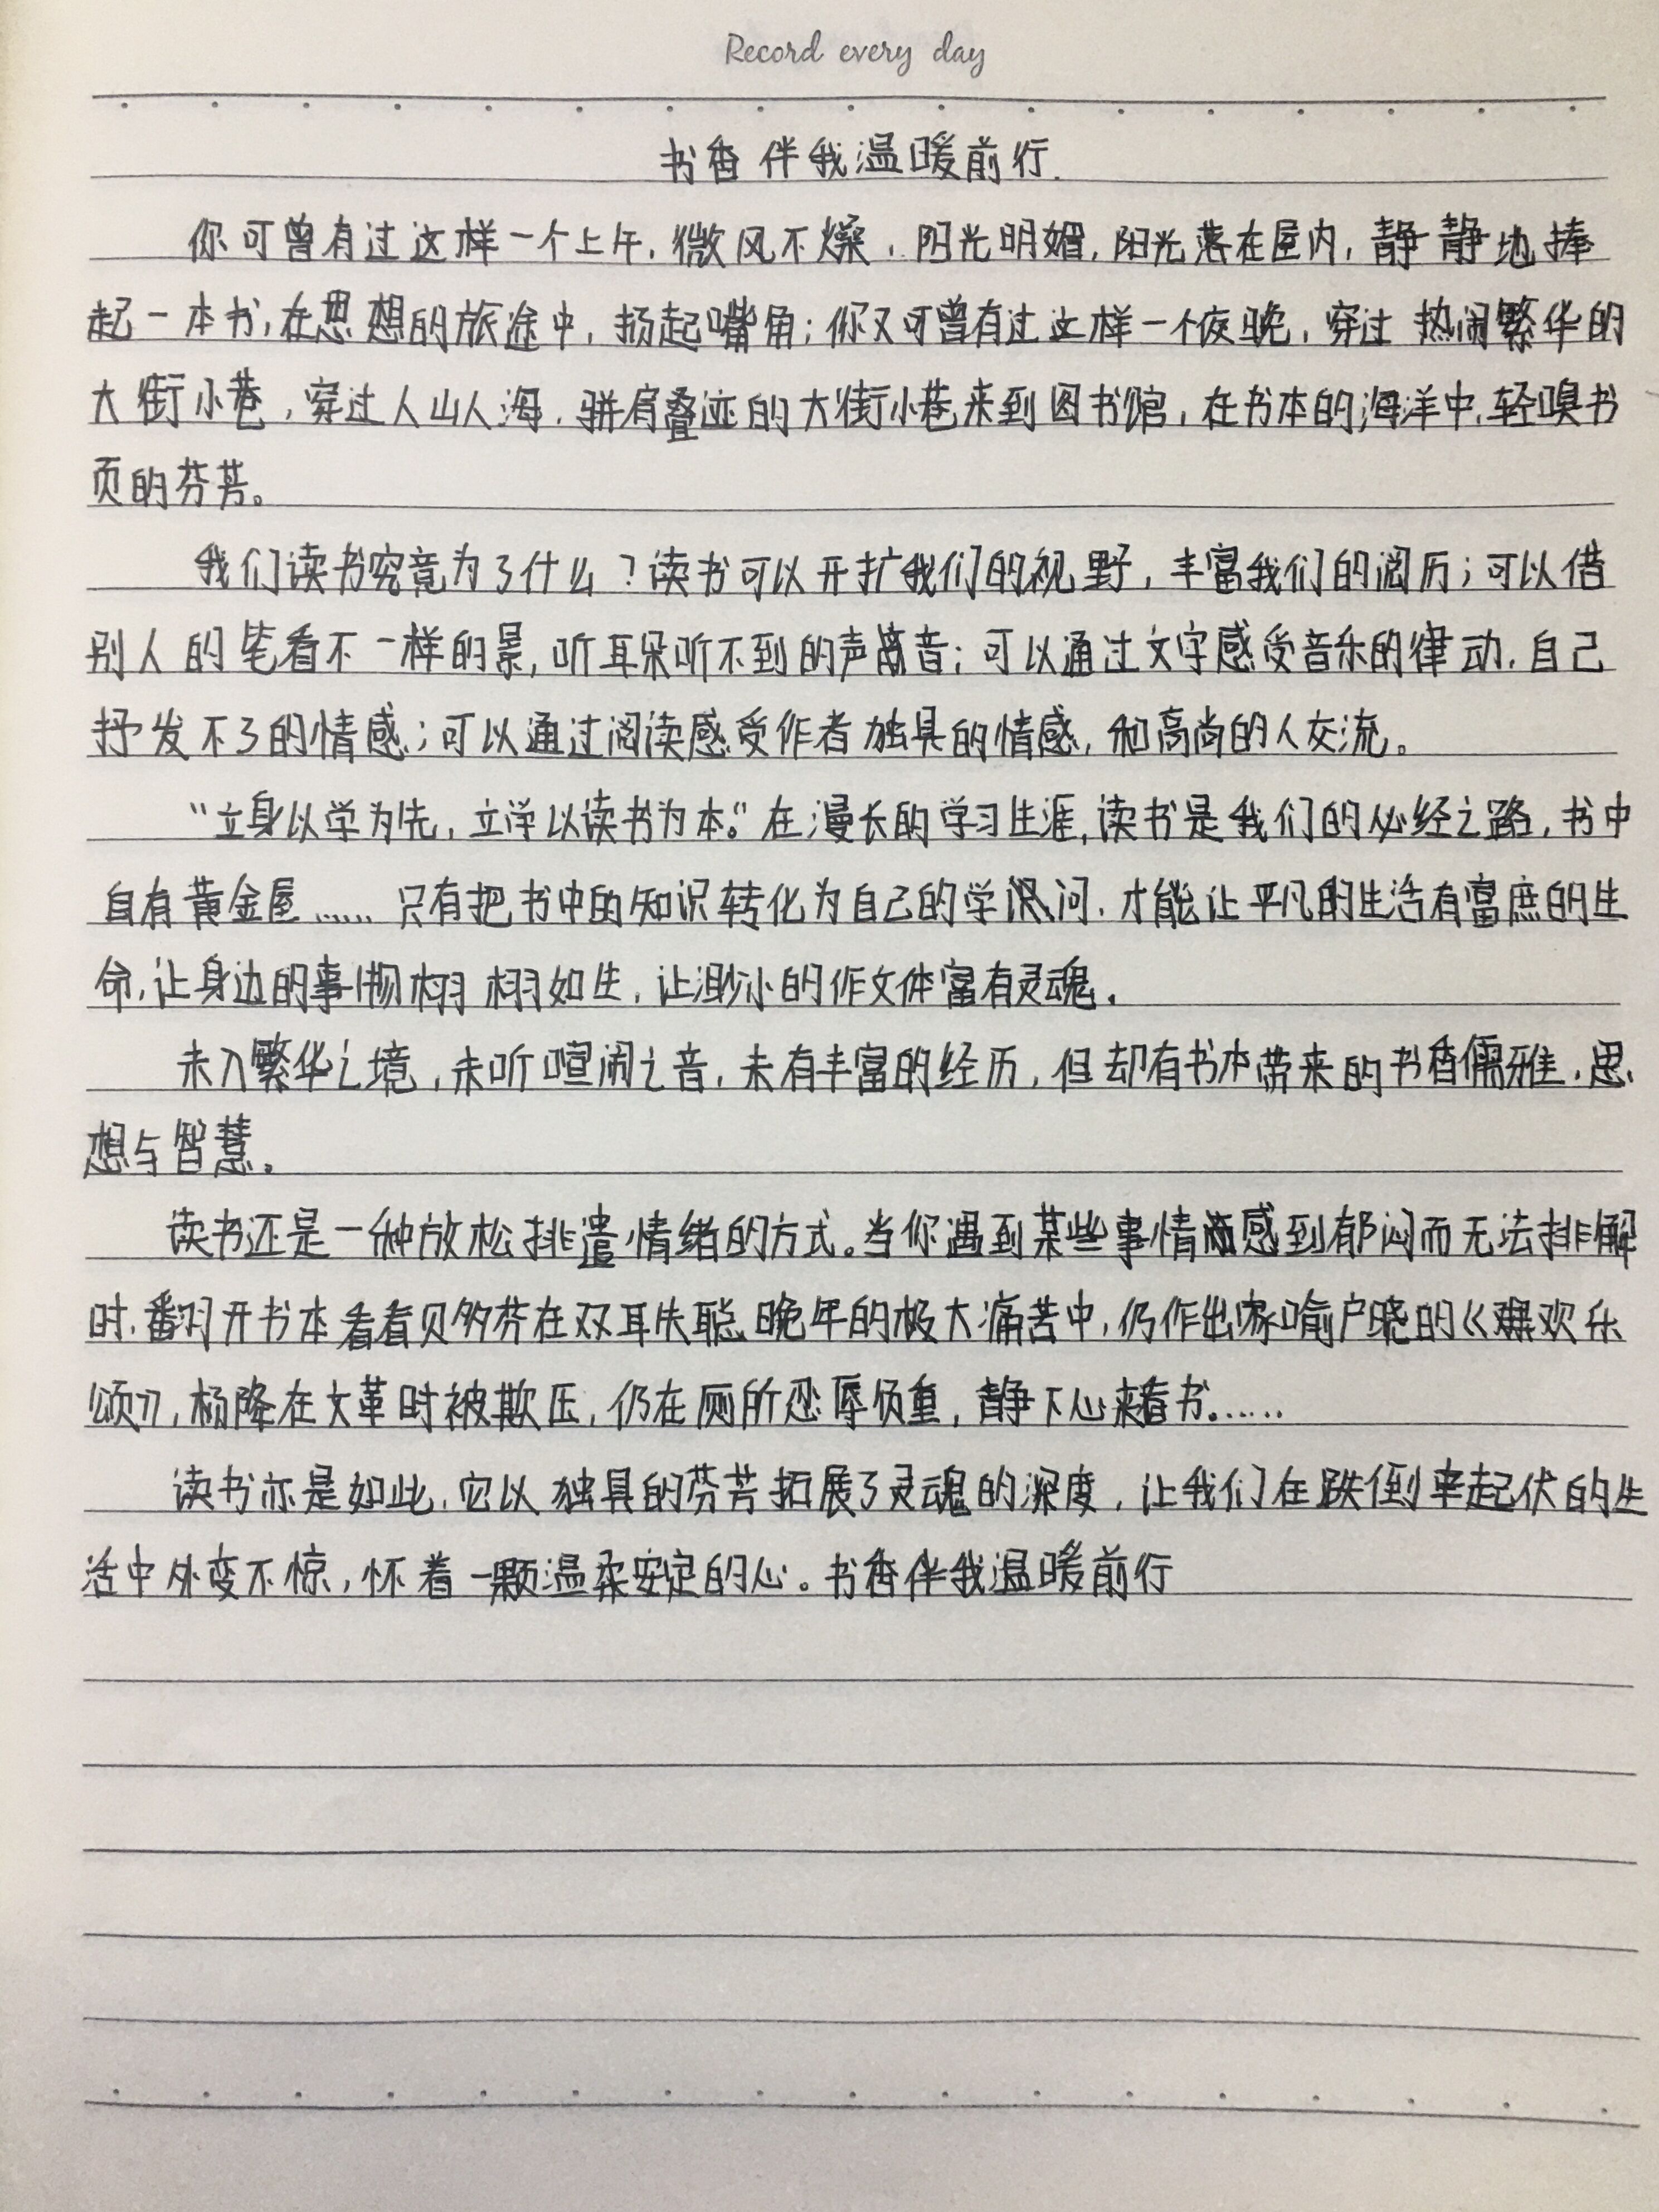 Record every day
书香伴我温暖前行.
你可曾有过这样一个上午,微风不燥,阳光明媚,阳光落在屋内,静静地捧
起一本书,在思想的旅途中,扬起嘴角;你又可曾有过这样一个夜晚,穿过热闹繁华的
大街小巷,穿过人山人海,骈肩叠迹的大街小巷来到图书馆,在书本的海洋中,轻嗅书
页的芬芳。
我们读书究竟为了什么?读书可以开扩我们的视野,丰富我们的阅历;可以借
别人的笔看不一样的景,听耳朵听不到的声音;可以通过文字感受音乐的律动,自己
抒发不了的情感;可以通过阅读感受作者独具的情感,和高尚的人交流。
“立身以学为先,立学以读书为本。”在漫长的学习生涯,读书是我们的必经之路,书中
自有黄金屋……只有把书中的知识转化为自己的学问,才能让平凡的生活有富庶的生
命,让身边的事物栩栩如生,让渺小的作文体富有灵魂.
未入繁华之境,未听喧闹之音,未有丰富的经历,但却有书本带来的书香儒雅,思
想与智慧。
读书还是一种放松排遣情绪的方式。当你遇到某些事情感到郁闷而无法排解
时,翻开书本看看贝多芬在双耳失聪晚年的极大痛苦中,仍作出家喻户晓的《欢乐
颂》,杨降在文革时被欺压,仍在厕所忍辱负重,静下心来看书。……
读书亦是如此,它以独具的芬芳拓展了灵魂的深度,让我们在跌倒起伏的生
活中处变不惊,怀着一颗温柔安定的心。书香伴我温暖前行